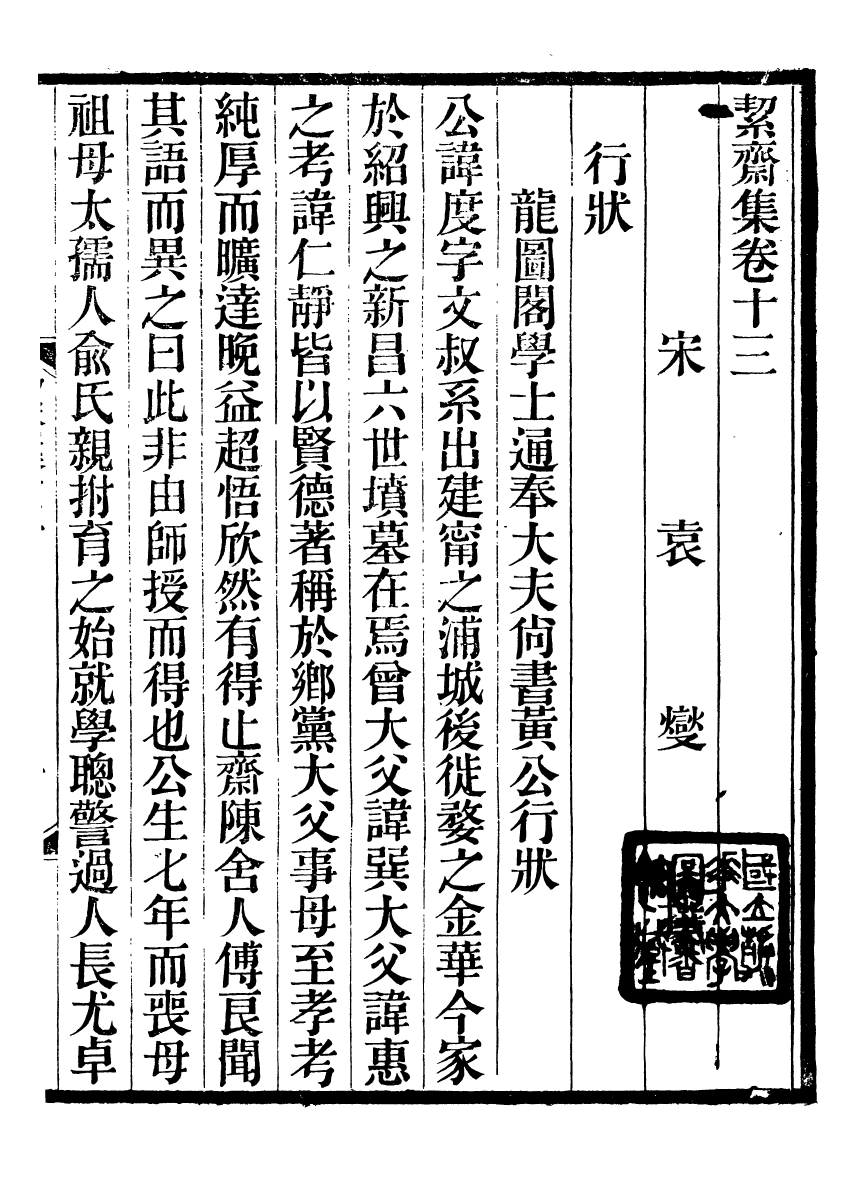 絜齋集卷十三
宋袁燮
行狀
龍圖閣學士通奉大夫尙書黃公行狀
公諱度字文叔系出建甯之浦城後徙婺之金華今家
於紹興之新昌六世墳墓在焉曾大父諱巽大父諱惠
之考諱仁靜皆以賢德著稱於鄉黨大父事母至孝考
純厚而曠達晚益超悟欣然有得止齋陳舍人傅良聞
其語而異之曰此非由師授而得也公生七年而喪母
祖母太孺人俞氏親拊育之始就學聰警過人長尤卓